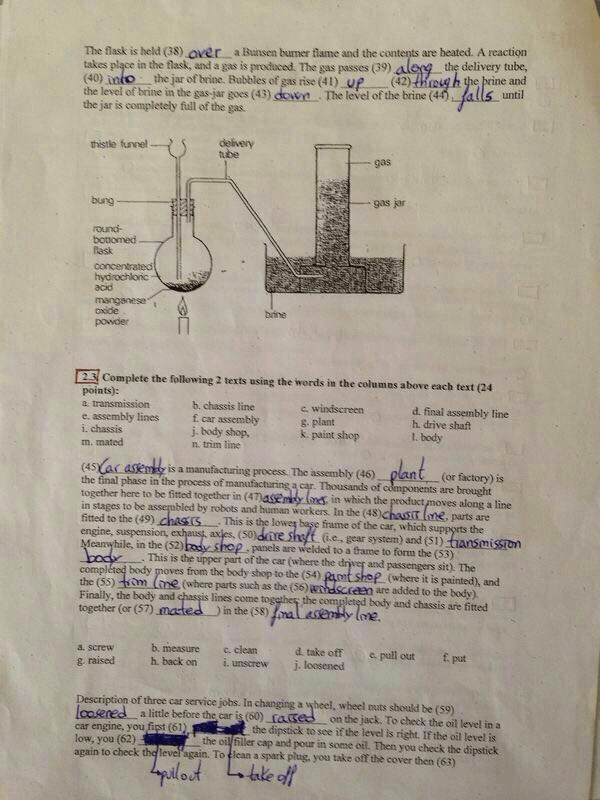 The flask is held (38) over a Bunsen burner flame and the contents are heated. A reaction
takes place in the flask, and a gas is produced. The gas passes (39) along the delivery tube,
(40) into the jar of brine. Bubbles of gas rise (41) up (42) through the brine and
the level of brine in the gas-jar goes (43) down. The level of the brine (44) falls until
the jar is completely full of the gas.
thistle funnel
delivery
tube
gas
bung
gas jar
round-
bottomed
flask
concentrated
hydrochloric
acid
manganese
oxide
powder
brine
2.3 Complete the following 2 texts using the words in the columns above each text (24
points):
a. transmission b. chassis line c. windscreen d. final assembly line
e. assembly lines f. car assembly g. plant h. drive shaft
i. chassis j. body shop, k. paint shop l. body
m. mated n. trim line
(45) Car assembly is a manufacturing process. The assembly (46) plant (or factory) is
the final phase in the process of manufacturing a car. Thousands of components are brought
together here to be fitted together in (47) assembly lines in which the product moves along a line
in stages to be assembled by robots and human workers. In the (48) chassis line, parts are
fitted to the (49) chassis. This is the lower base frame of the car, which supports the
engine, suspension, exhaust, axles, (50) drive shaft (i.e., gear system) and (51) transmission
Meanwhile, in the (52) body shop, panels are welded to a frame to form the (53)
body. This is the upper part of the car (where the driver and passengers sit). The
completed body moves from the body shop to the (54) paint shop (where it is painted), and
the (55) trim line (where parts such as the (56) windscreen are added to the body).
Finally, the body and chassis lines come together, the completed body and chassis are fitted
together (or (57) mated) in the (58) final assembly line.
a. screw b. measure c. clean d. take off e. pull out f. put
g. raised h. back on i. unscrew j. loosened
Description of three car service jobs. In changing a wheel, wheel nuts should be (59)
loosened a little before the car is (60) raised on the jack. To check the oil level in a
car engine, you first (61) the dipstick to see if the level is right. If the oil level is
low, you (62) the oil filler cap and pour in some oil. Then you check the dipstick
again to check the level again. To clean a spark plug, you take off the cover then (63)
pull out take off